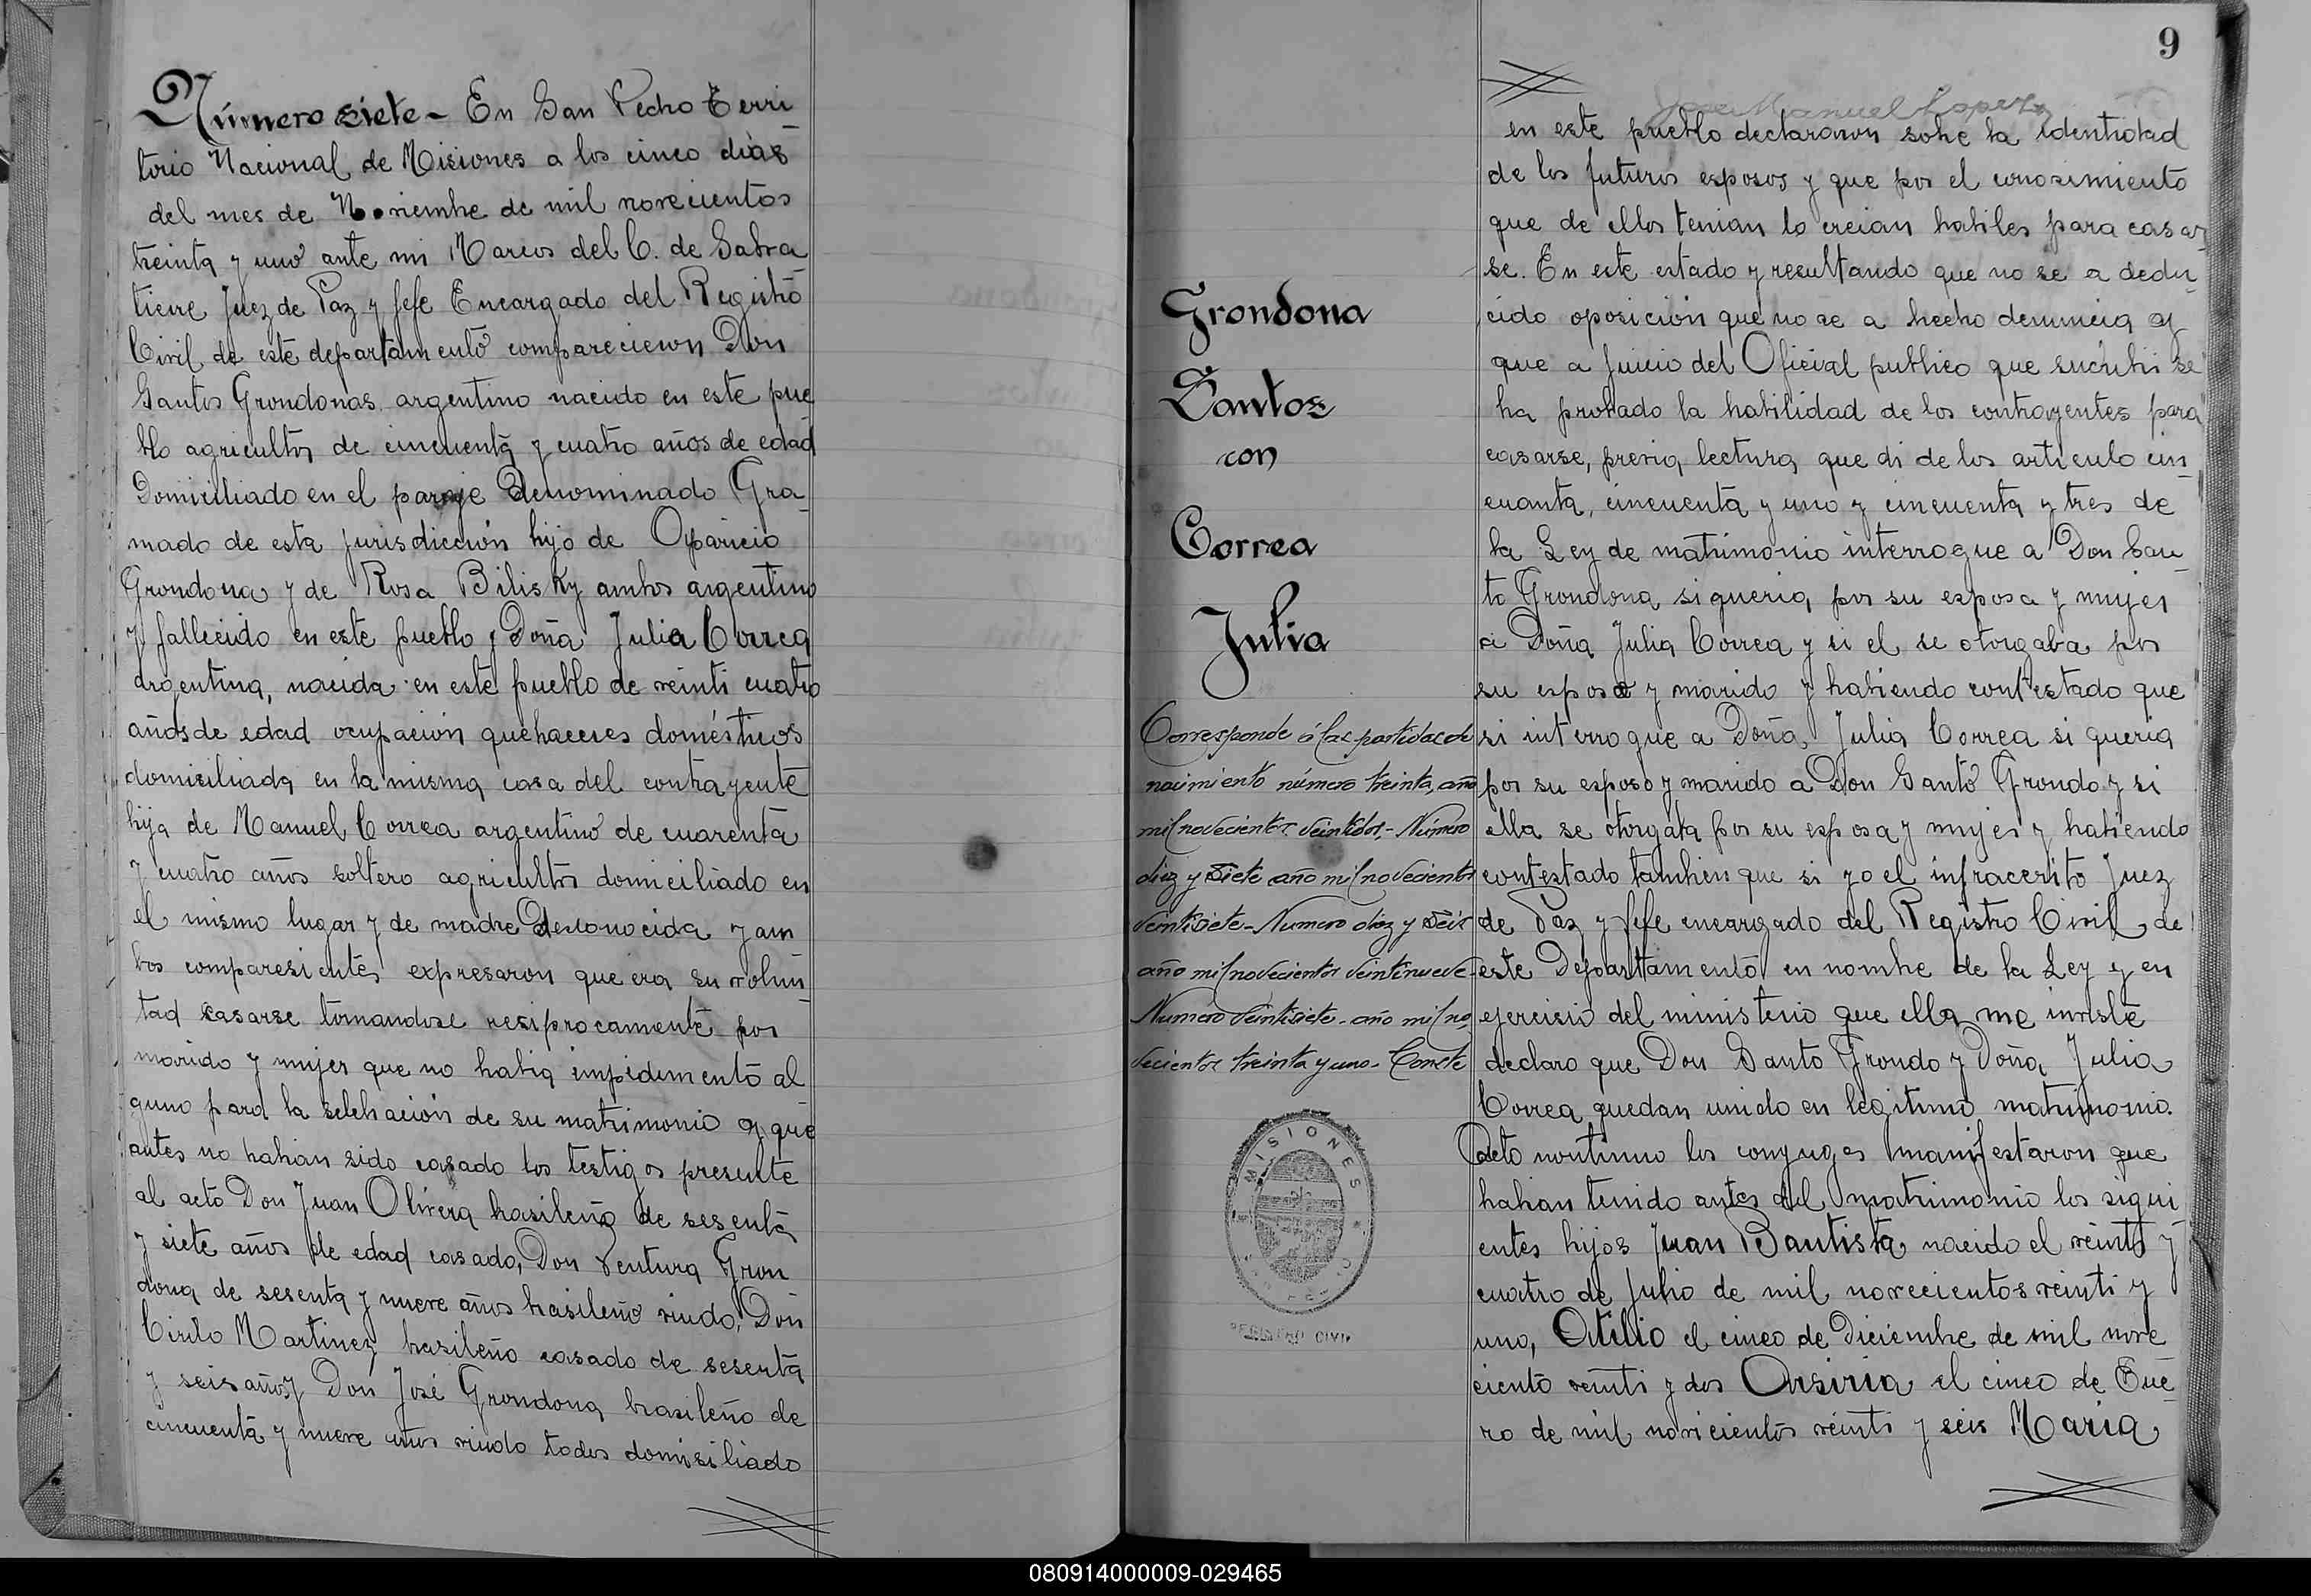 Número siete - En San Pedro Terri
torio Nacional de Misiones a los cinco dias
del mes de Noviembre de mil novecientos
treinta y uno ante mi Marcos del C. de
Juez de Paz y Jefe Encargado del Registro
Civil de este departamento comparecieron Don
Santos Grondonas argentino nacido en este pue
blo agricultor de cincuenta y cuatro años de edad
Domiciliado en el paraje Denominado Gra-
mado de esta jurisdicción hijo de Oparicio
Grondona y de Rosa Bilisky ambos argentino
y fallecido en este pueblo y Doña Julia Correa
argentina, nacida en este pueblo de veinti cuatro
años de edad ocupación quehaceres domésticos
domisiliada en la misma casa del contrayente
hija de Manuel Correa argentino de cuarenta
y cuatro años soltero agricultor domiciliado en
el mismo lugar y de madre Desconocida y am
bos comparesientes expresaron que era su volun
tad casarse tomandose resiprocamente por
marido y mujer que no habia impedimento al
guno para la selebración de su matrimonio y que
antes no habian sido casado los testigos presente
al acto Don Juan Olivera brasileño de sesenta
y siete años de edad casado, Don Ventura Gron
dona de sesenta y nueve años brasileño viudo, Don
Cirilo Martinez brasileño casado de sesenta
y seis años y Don José Grondona brasileño de
cincuenta y nueve años viudo todos domisiliado
9
Jose Manuel Lopez
en este pueblo declararon sobre la identidad
de los futuros esposos y que por el conosimiento
que de ellos tenian lo creian habiles para casar-
se. En este estado y resultando que no se a dedu-
cido oposición que no se a hecho denuncia y
que a juicio del Oficial publico que sucribi se
ha probado la habilidad de los contrayentes para
casarse, previa lectura que di de los articulo cin
cuanta, cincuenta y uno y cincuenta y tres de
la Ley de matrimonio interrogue a Don San-
to Grondona si queria por su esposa y mujer
a Doña Julia Correa y si el se otorgaba por
su esposo y marido y habiendo contestado que
si interrogue a Doña Julia Correa si queria
por su esposo y marido a Don Santo Grondo y si
ella se otorgaba por su esposa y mujer y habiendo
contestado tambien que si yo el infracerito Juez
de Paz y Jefe encargado del Registro Civil de
este Departamento en nombre de la Ley y en
ejercisio del ministerio que ella me inviste
declaro que Don Santo Grondo y Doña Julia
Correa quedan unido en legitimo matrimonio.
Acto nontinuo los conyuges manifestaron que
habian tenido antes del matrimonio los sigui
entes hijos Juan Bautista nacido el veinti y
cuatro de Julio de mil novecientos veinti y
uno, Otilio el cinco de Diciembre de mil nove
ciento veinti y dos Orsiria el cinco de Ene-
ro de mil novicientos veinti y seis Maria
Grondona
Santos
con
Correa
Julia
Corresponde á las partidas de
nacimiento número treinta, año
mil novecientos veintidos,- Número
diez y siete año mil novecientos
veintisiete - Numero diez y seis
año mil novecientos veintinueve-
Numero veintisiete - año mil no-
vecientos treinta y uno - Conste
MISIONES
REGISTRO CIVIL
080914000009-029465